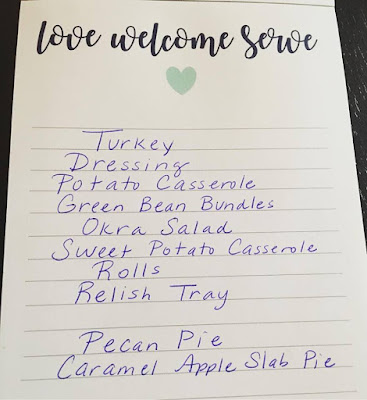 love welcome serve
Turkey
Dressing
Potato Casserole
Green Bean Bundles
Okra Salad
Sweet Potato Casserole
Rolls
Relish Tray
Pecan Pie
Caramel Apple Slab Pie